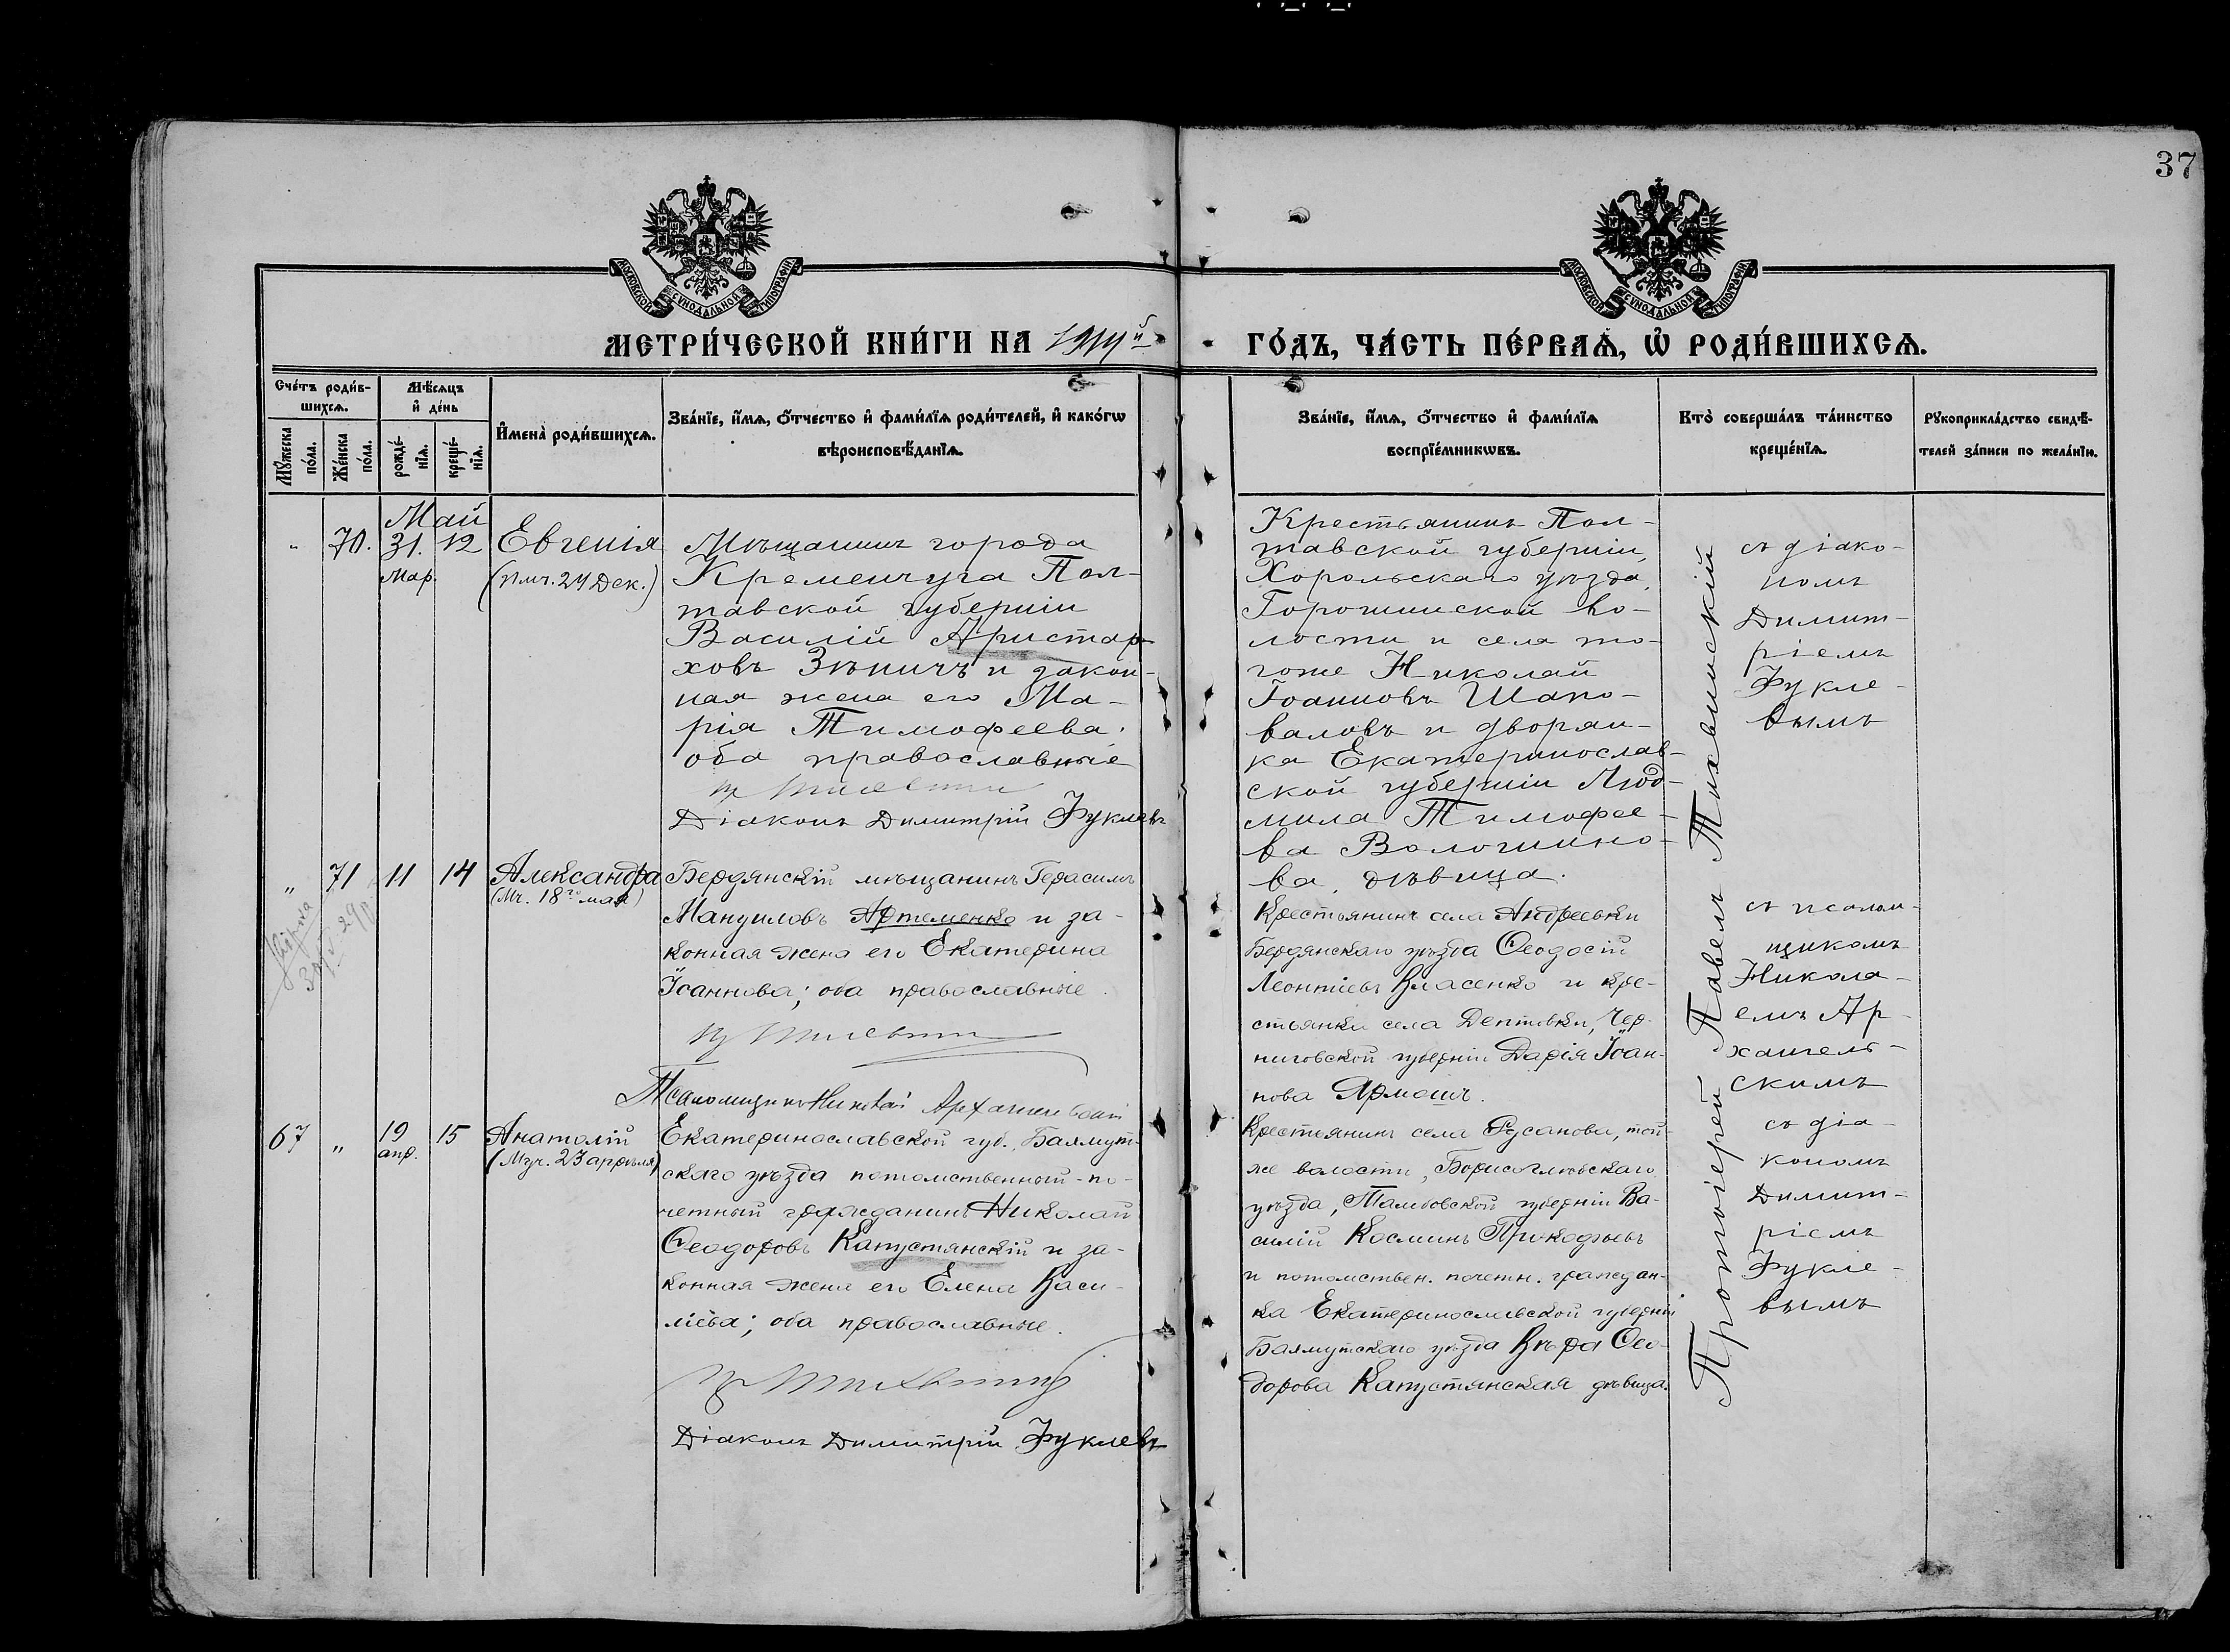 37
МОСКОВСКОЙ СУНОДАЛЬНОЙ ТИПОГРАФІИ
МОСКОВСКОЙ СУНОДАЛЬНОЙ ТИПОГРАФІИ
МЕТРИ́ЧЕСКОЙ КНИ́ГИ НА 1914й
ГО́ДЪ, ЧА́СТЬ ПЕ́РВАѦ, Ѡ҆ РОДИ́ВШИХСѦ.
Сче́тъ роди́в-
шихсѧ.
Мꙋ́жеска по́ла.
Же́нска по́ла.
Мѣ́сѧцъ
и҆ де́нь
рожде́-
нїѧ.
креще́-
нїѧ.
И҆мена̀ роди́вшихсѧ.
Зва́нїе, и҆́мѧ, ѻ҆́тчество и҆ фами́лїѧ роди́телей, и҆ како́гѡ
вѣроисповѣ́данїѧ.
Зва́нїе, и҆́мѧ, ѻ҆́тчество и҆ фами́лїѧ
воспрїе́мникѡвъ.
Кто̀ соверша́лъ та́инство
креще́нїѧ.
Рꙋкоприкла́дство свидѣ́-
телей за́писи по жела́нїю.
"
70.
Май
31. 12
Мар.
Евгенія
(Пмч. 24 Дек.)
Мѣщанинъ города
Кременчуга Пол-
тавской губерніи
Василій Аристар-
ховъ Зѣничъ и закон-
ная жена его Ма-
рія Тимофеева;
оба православные
Діаконъ Димитрій Фуклевъ
Крестьянинъ Пол-
тавской губерніи,
Хорольскаго уѣзда,
Горошинской во-
лости и села то-
гоже Николай
Іоанновъ Шапо-
валовъ и дворян-
ка Екатеринослав-
ской губерніи Люд-
мила Тимофее-
ва Вологшино-
ва, дѣвица.
съ діако-
номъ
Димит-
ріемъ
Фукле-
вымъ
Протоіерей Павелъ Тихвинскій
"
71
11
14
Александра
(Мч. 18го мая)
Бердянскій мѣщанинъ Герасимъ
Мануиловъ Артеменко и за-
конная жена его Екатерина
Іоаннова; оба православные.
Псаломщикъ Николай Архангельскій
Крестьянинъ села Андреевки
Бердянскаго уѣзда Ѳеодосій
Леонтіевъ Власенко и кре-
стьянка села Дептовки, Чер-
ниговской губерніи Дарія Іоан-
нова Ярмошъ.
съ псалом-
щикомъ
Никола-
емъ Ар-
хангель-
скимъ
67
"
19
апр.
15
Анатолій
(Муч. 23 апрѣля)
Екатеринославской губ., Бахмут-
скаго уѣзда потомственный по-
четный гражданинъ Николай
Ѳеодоровъ Капустянскій и за-
конная жена его Елена Васи-
ліева; оба православные.
Діаконъ Димитрій Фуклевъ
Крестьянинъ села Русанова, той-
же волости, Борисоглѣбскаго
уѣзда, Тамбовской губерніи Ва-
силій Косминъ Прокофьевъ
и потомствен. почетн. граждан-
ка Екатеринославской губерніи
Бахмутскаго уѣзда Вѣра Ѳео-
дорова Капустянская дѣвица.
съ діа-
кономъ
Димит-
ріемъ
Фукле-
вымъ